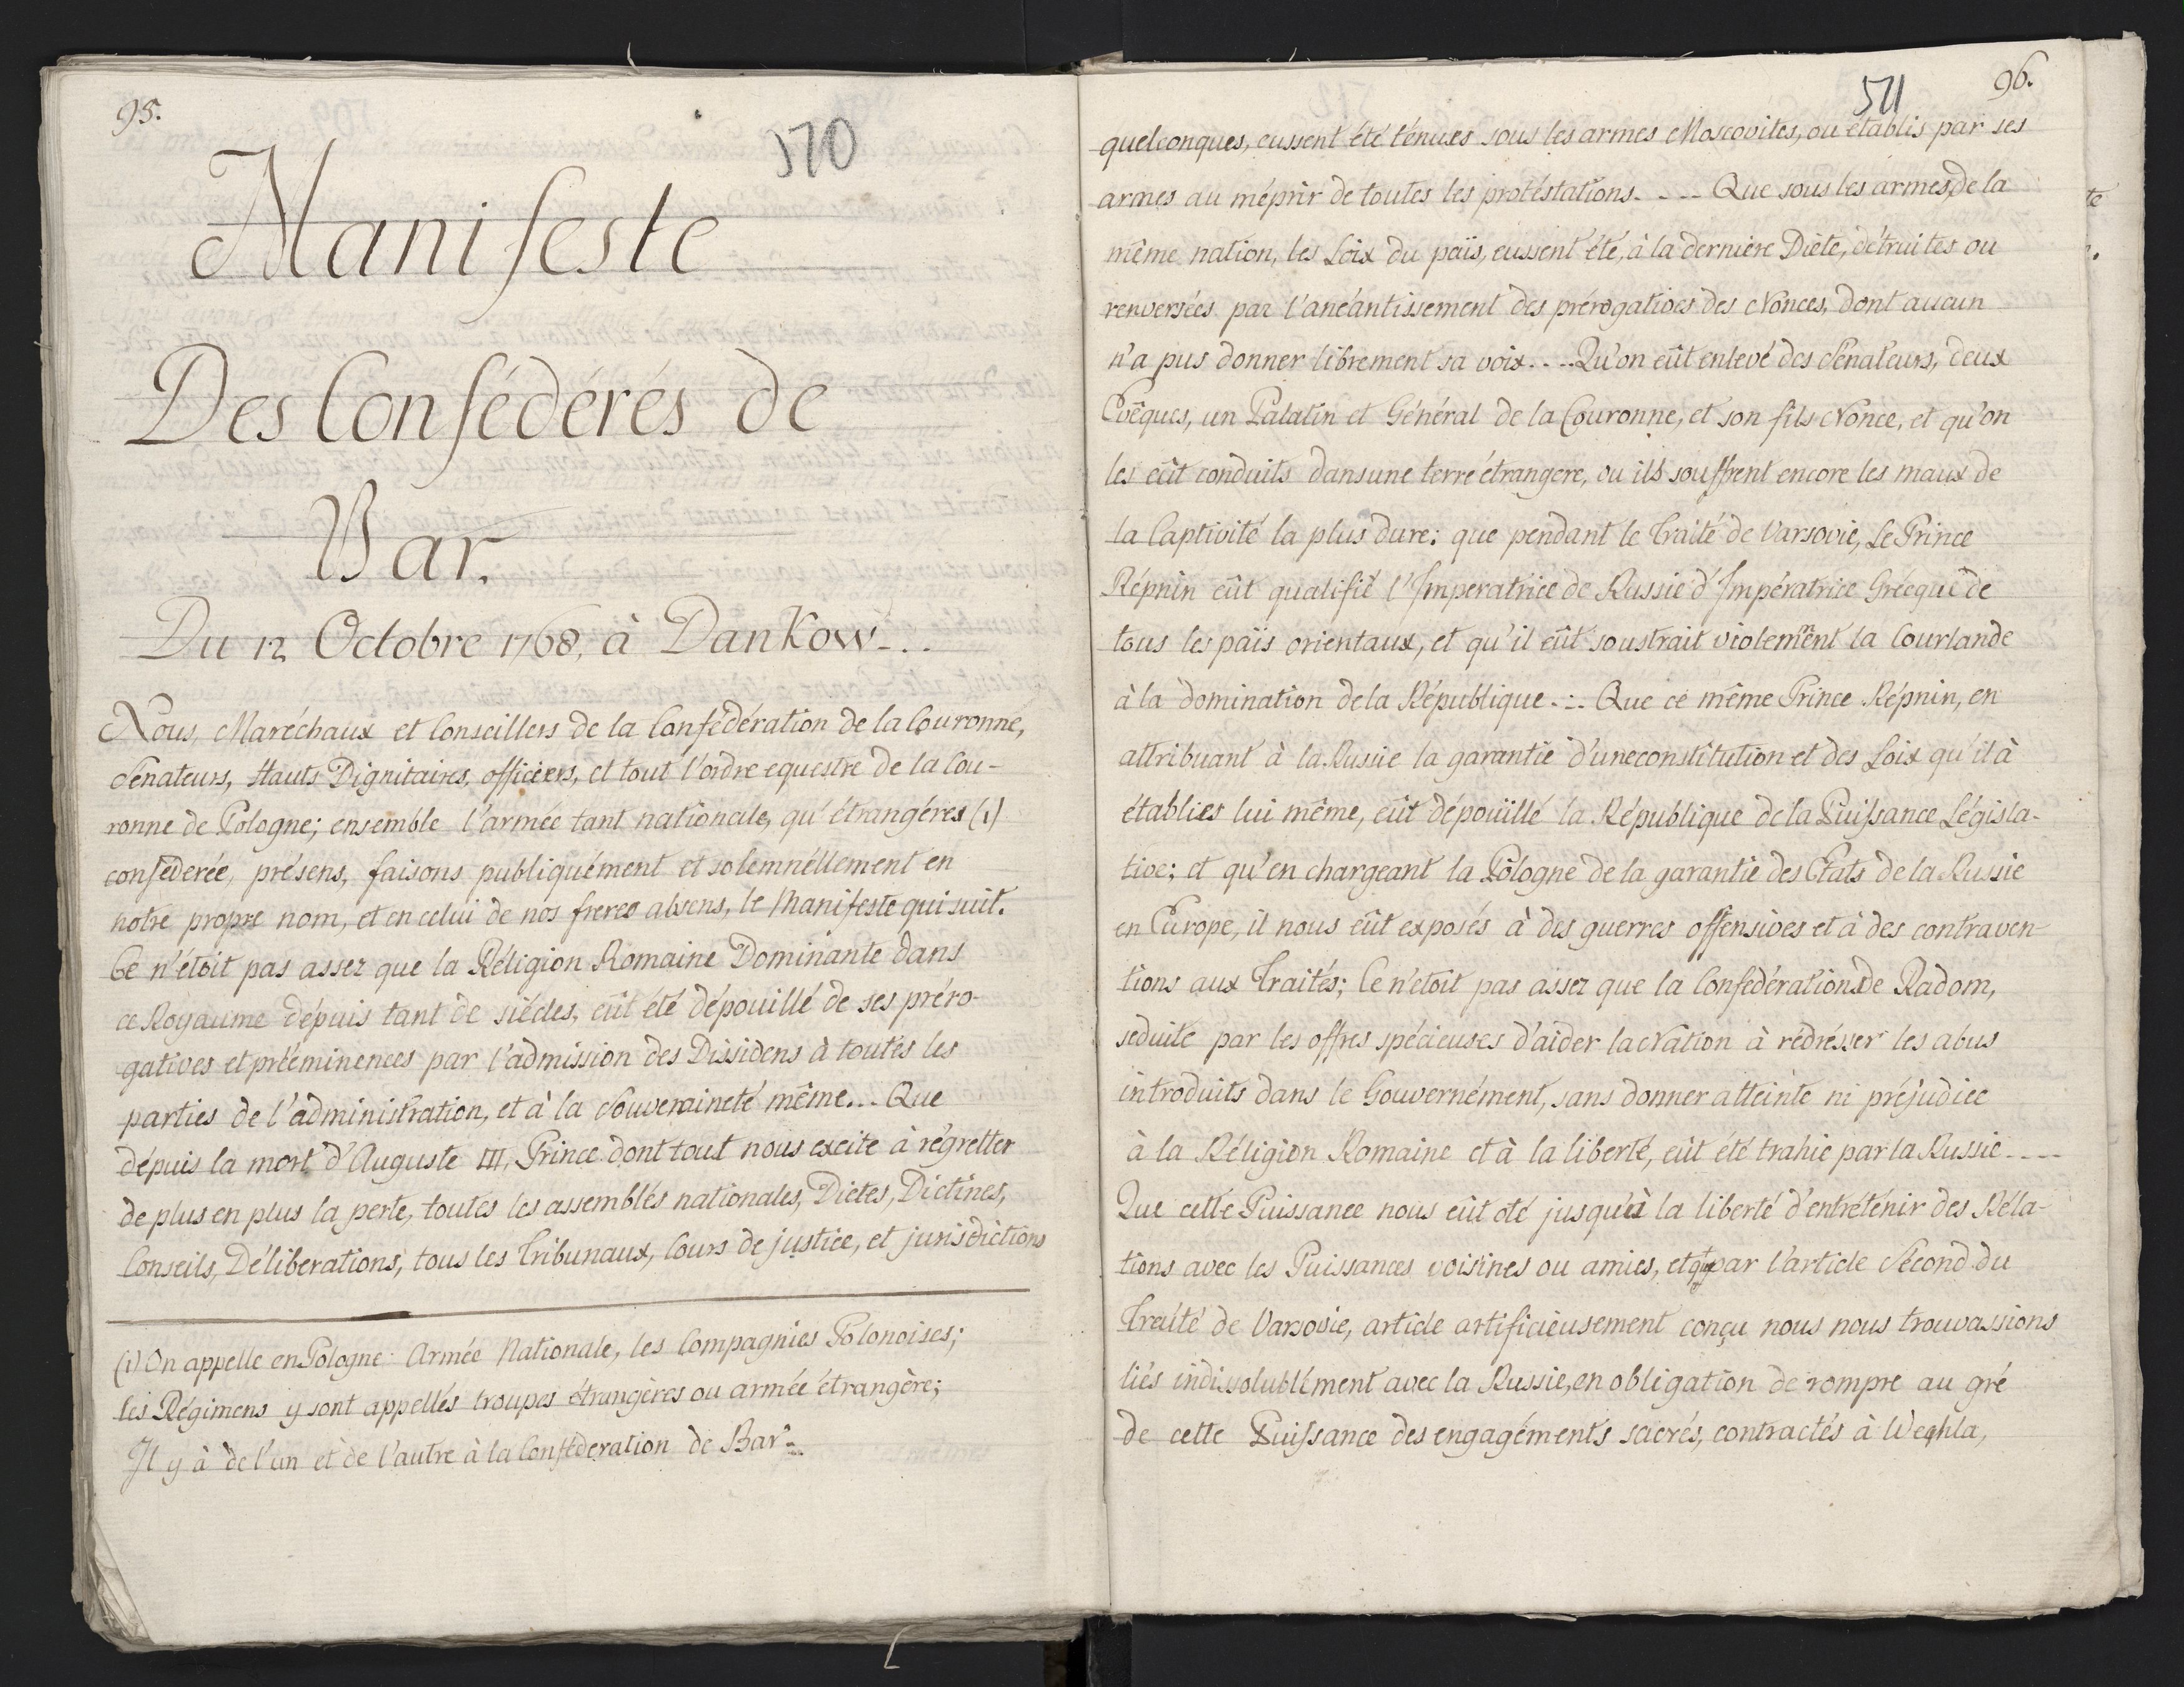 95.
570
Manifeste
Des Confédérés de
Bar.
Du 12 Octobre 1768, à Dankow...
Nous, Maréchaux et Conseillers de la Confédération de la Couronne,
Sénateurs, Hauts Dignitaires, officiers, et tout l'ordre equestre de la Cou-
ronne de Pologne; ensemble l'armée tant nationale, qu'étrangéres (1)
confederée, présens, faisons publiquément et solemnéllement en
notre propre nom, et en celui de nos freres absens, le Manifeste qui suit.
Ce n'étoit pas assez que la Réligion Romaine Dominante dans
ce Royaume dépuis tant de siécles, eût été dépouillé de ses préro-
gatives et prééminences par l'admission des Dissidens à toutes les
parties de l'administration, et à la Souveraineté même... Que
dépuis la mort d'Auguste III, Prince dont tout nous excite à régretter
de plus en plus la perte, toutes les assemblés nationales, Diètes, Diétines,
Conseils, Déliberations, tous les Tribunaux, Cours de justice, et jurisdictions
(1) On appelle en Pologne Armée Nationale, les Compagnies Polonoises;
les Régimens y sont appellés troupes étrangères ou armée étrangère;
Il y à de l'un et de l'autre à la Confédération de Bar.
511
96.
quelconques, eussent été ténues sous les armes Moscovites, ou établis par ses
armes au mépris de toutes les protéstations.... Que sous les armes de la
même nation, les Loix du païs, eussent été, à la derniere Diète, détruites ou
renversées par l'anéantissement des prérogatives des Nonces, dont aucun
n'a pus donner librement sa voix.... Qu'on eût enlevé des Sénateurs, deux
Evêques, un Palatin et Général de la Couronne, et son fils Nonce, et qu'on
les eût conduits dans une terre étrangere, ou ils souffrent encore les maux de
la Captivité la plus dure: que pendant le Traité de Varsovie, Le Prince
Répnin eût qualifié l'Imperatrice de Russie d'Impératrice Grécque de
tous les païs orientaux, et qu'il eût soustrait violemment la Courlande
à la domination de la République... Que ce même Prince Répnin, en
attribuant à la Russie la garantie d'une constitution et des Loix qu'il à
établies lui même, eût dépoüillé la République de la Puissance Législa-
tive; et qu'en chargeant la Pologne de la garantie des Etats de la Russie
en Europe, il nous eût exposés à des guerres offensives et à des contraven-
tions aux Traités; Ce n'étoit pas assez que la Confédération de Radom,
seduite par les offres spécieuses d'aider la Nation à rédrésser les abus
introduits dans le Gouvernément, sans donner atteinte ni préjudice
à la Réligion Romaine et à la liberté, eût été trahie par la Russie....
Que cette Puissance nous eût oté jusqu'à la liberté d'entréténir des Réla-
tions avec les Puissances voisines ou amies, et que par l'article Sécond du
Traité de Varsovie, article artificieusement conçu nous nous trouvassions
liés indissolublément avec la Russie, en obligation de rompre au gré
de cette Puissance des engagéments sacrés, contractés à Weghla,
te